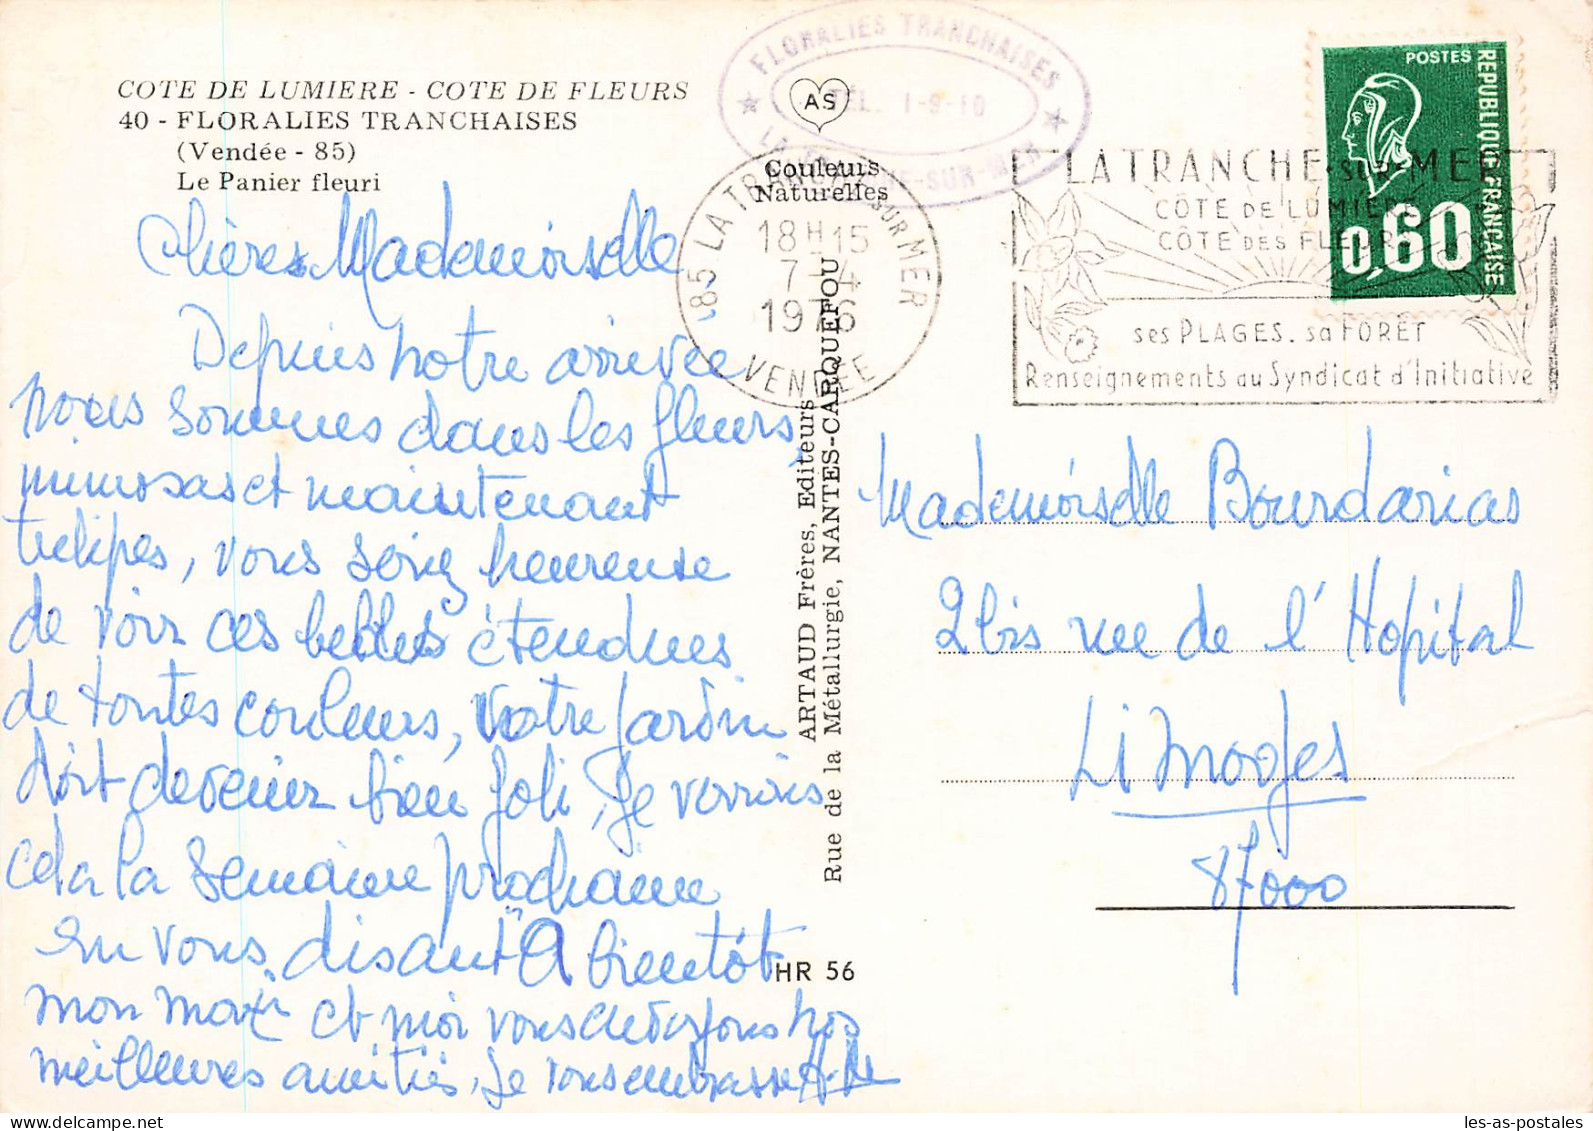 COTE DE LUMIERE - COTE DE FLEURS
40 - FLORALIES TRANCHAISES
(Vendée - 85)
Le Panier fleuri
Chères Mademoiselle
Depuis notre arrivée
nous sommes dans les fleurs,
mimosas et maintenant
tulipes, vous seriez heureuse
de voir ces belles étendues
de toutes couleurs, votre jardin
doit devenir bien joli, je verrais
cela la semaine prochaine
en vous disant "A bientôt
mon mari et moi vous adressons nos
meilleures amitiés, je vous embrasse
FLORALIES TRANCHAISES
TÉL. 1-9-10
LA TRANCHE-SUR-MER
AS
Couleurs
Naturelles
85 LA TRANCHE SUR MER
18H15
7-4
1976
VENDÉE
ARTAUD Frères, Editeurs
Rue de la Métallurgie, NANTES-CARQUEFOU
HR 56
LA TRANCHE-SUR-MER
CÔTE DE LUMIERE
CÔTE DES FLEURS
ses PLAGES. sa FORÊT
Renseignements au Syndicat d'Initiative
POSTES
REPUBLIQUE FRANÇAISE
0,60
Mademoiselle Bourdarias
2 bis rue de l'Hopital
Limoges
87000
les-as-postales